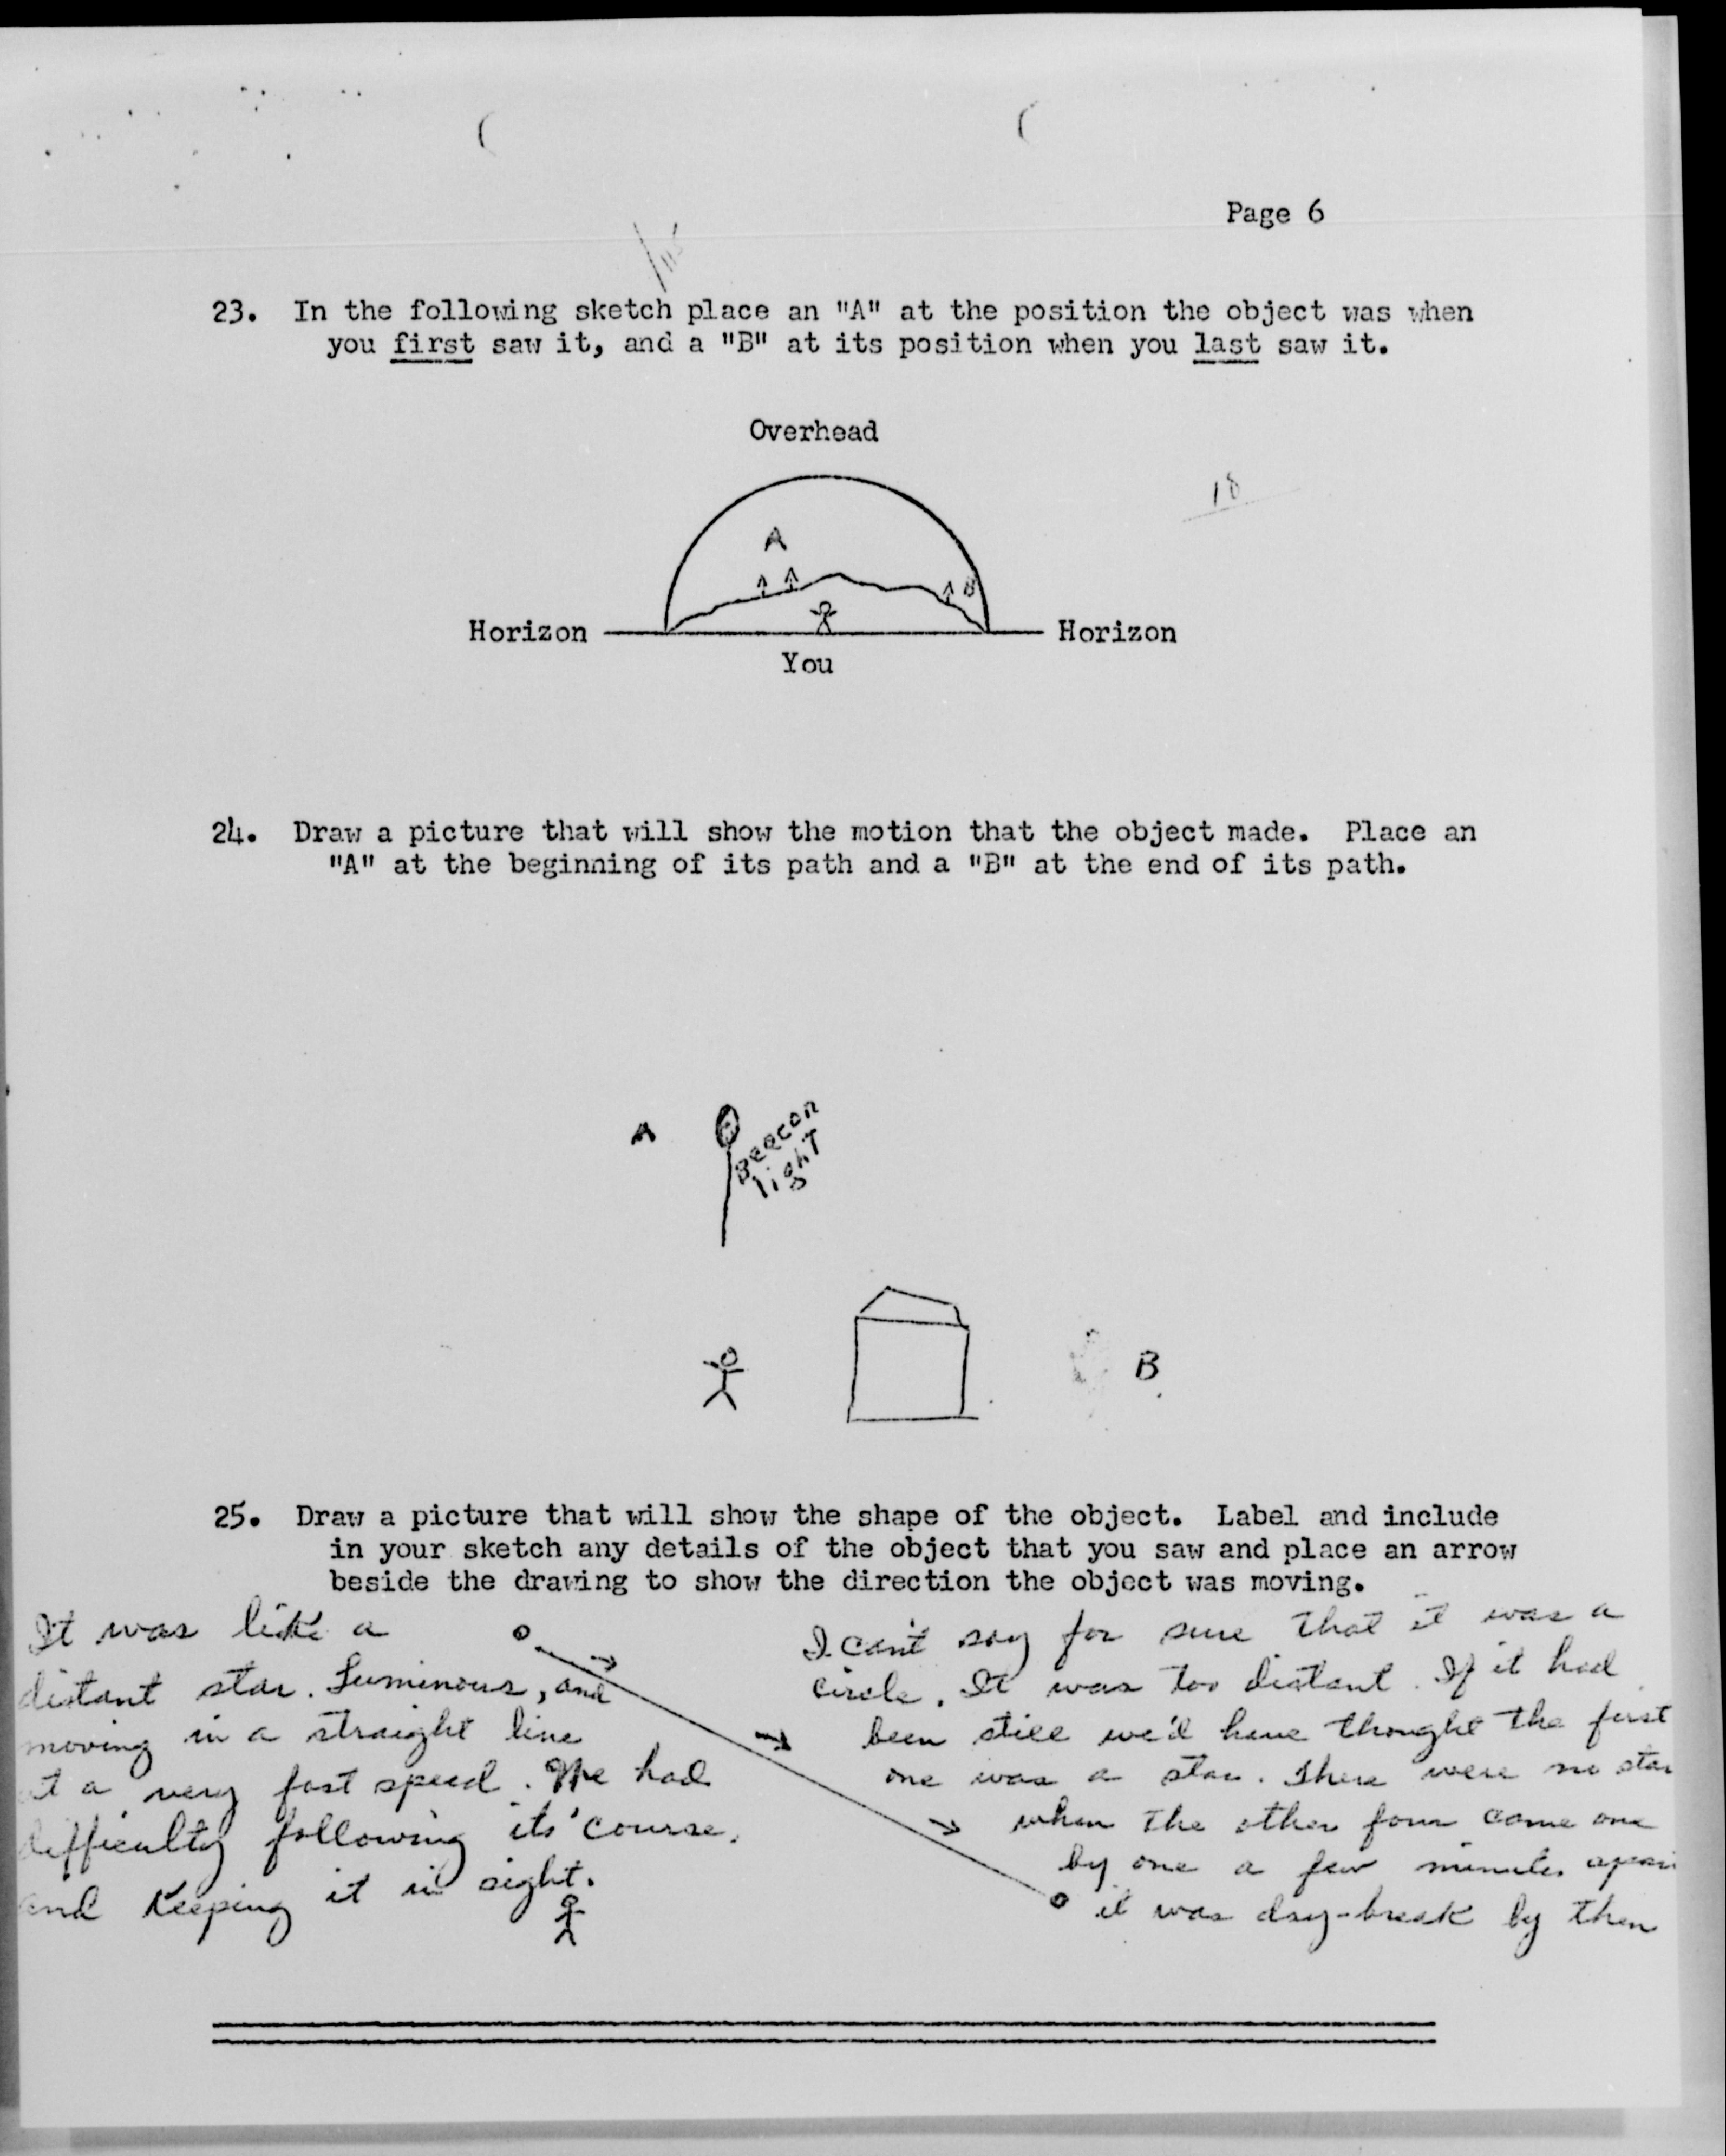 Page 6
23. In the following sketch place an "A" at the position the object was when
you first saw it, and a "B" at its position when you last saw it.
Overhead
18
A
B
Horizon
Horizon
You
24. Draw a picture that will show the motion that the object made. Place an
"A" at the beginning of its path and a "B" at the end of its path.
A
Beacon
light
B
25. Draw a picture that will show the shape of the object. Label and include
in your sketch any details of the object that you saw and place an arrow
beside the drawing to show the direction the object was moving.
It was like a
distant star. Luminous, and
moving in a straight line
at a very fast speed. We had
difficulty following its' course,
and keeping it in sight.
I can't say for sure that it was a
circle. It was too distant. If it had
been still we'd have thought the first
one was a star. There were no star
when the other four came one
by one a few minutes apart
it was day-break by then